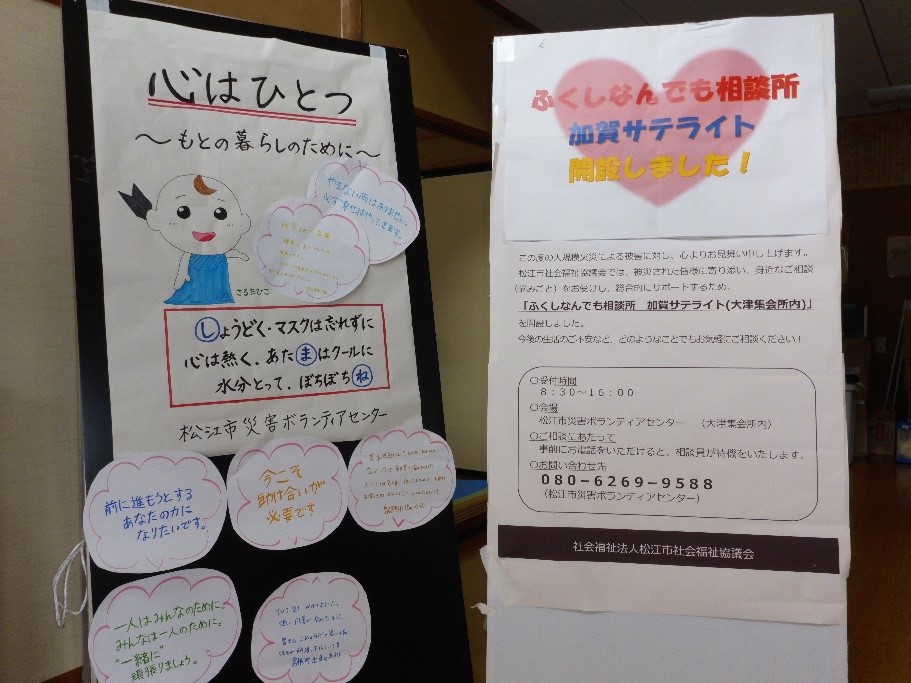 心はひとつ
～もとの暮らしのために～
やまない雨はありません。
必ず幸せはやってきます。
さるたひこ
しょうどく・マスクは忘れずに
心は熱く、あたまはクールに
水分とって、ぼちぼちね
松江市災害ボランティアセンター
前に進もうとする
あなたの力に
なりたいです。
今こそ
助け合いが
必要です
一人はみんなのために。
みんなは一人のために。
"一緒に"
頑張りましょう。
ふくしなんでも相談所
加賀サテライト
開設しました！
この度の大規模火災による被害に対し、心よりお見舞い申し上げます。
松江市社会福祉協議会では、被災された皆様に寄り添い、身近なご相談
（悩みごと）をお受けし、総合的にサポートするため、
「ふくしなんでも相談所　加賀サテライト(大津集会所内)」
を開設しました。
今後の生活のご不安など、どのようなことでもお気軽にご相談ください！
○受付時間
８：３０～１６：００
○会場
松江市災害ボランティアセンター　（大津集会所内）
○ご相談にあたって
事前にお電話をいただけると、相談員が待機をいたします。
○お問い合わせ先
０８０－６２６９－９５８８
（松江市災害ボランティアセンター）
社会福祉法人松江市社会福祉協議会